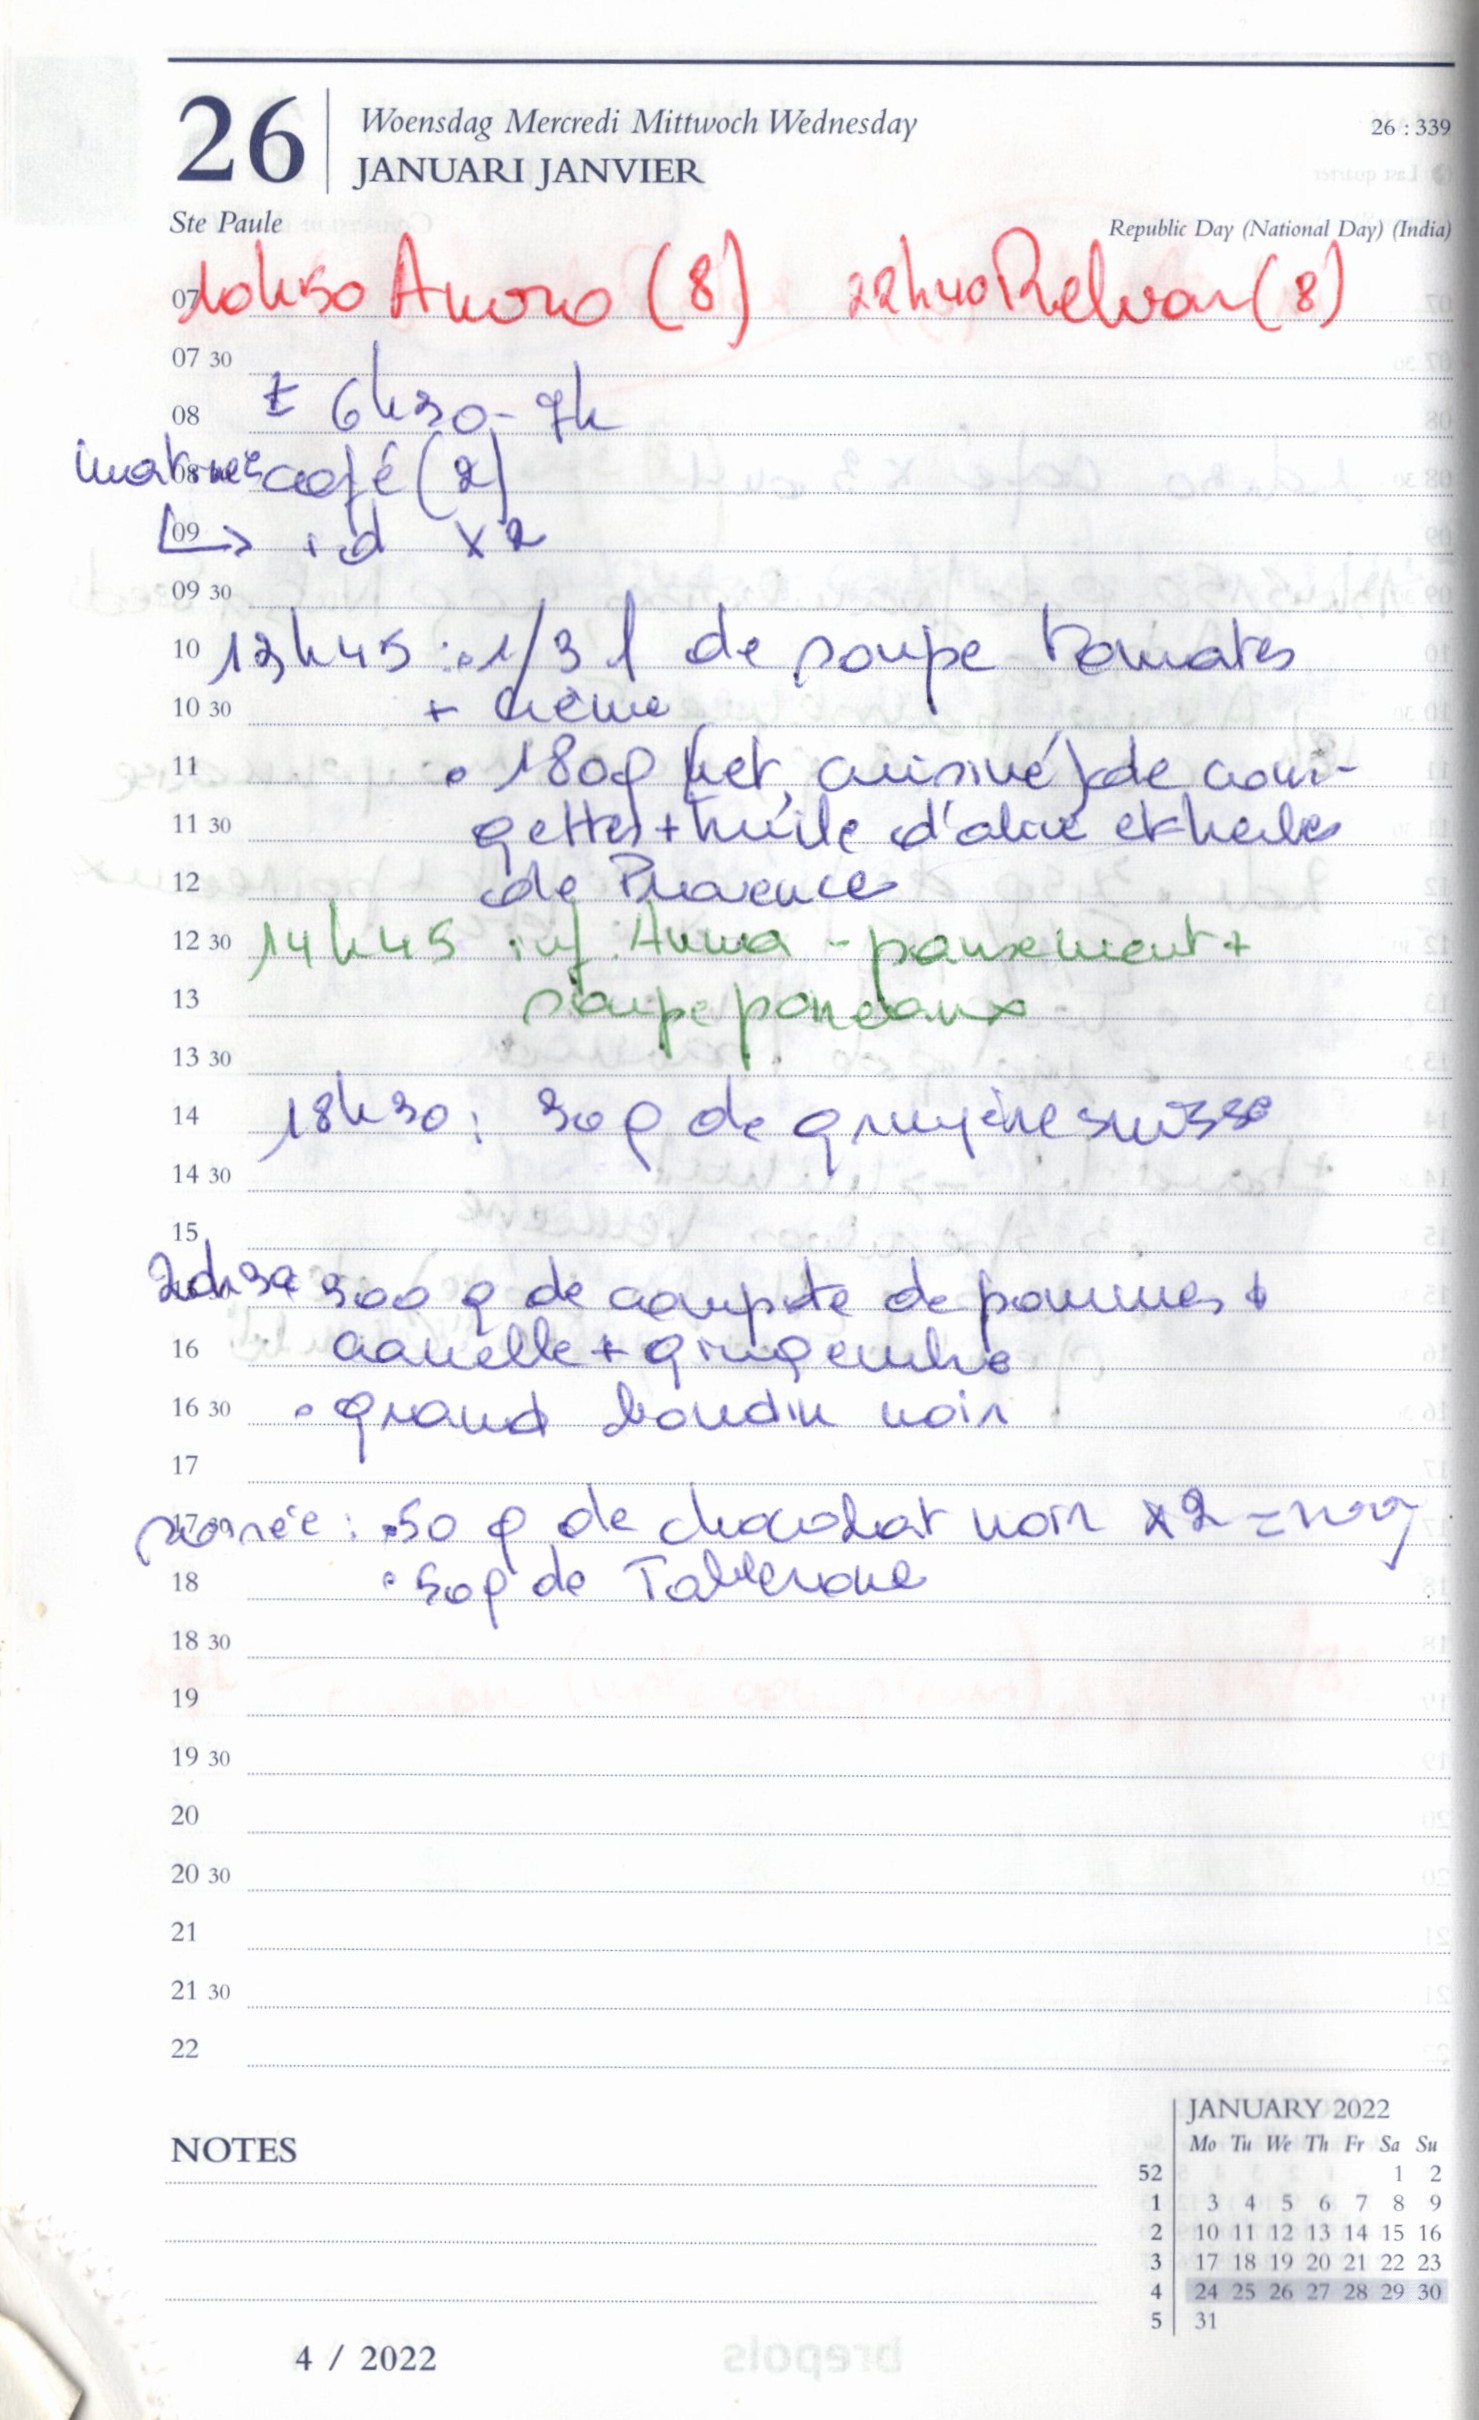 26 Woensdag Mercredi Mittwoch Wednesday 26 : 339
JANUARI JANVIER
Ste Paule Republic Day (National Day) (India)
07 10h50 Anoro (8) 22h40 Relvar (8)
07 30
08 ± 6h30-7h
08 30 matinée café (2)
09 ↳ id x 2
09 30
10 13h45 : • 1/3 l de soupe tomates
10 30 + crème
11 • 180g (net, cuisiné) de cour-
11 30 gettes + huile d'olive et herbes
12 de Provence
12 30 14h45 inf. Anna - pansement +
13 soupe poireaux
13 30
14 18h30 : 30g de gruyère suisse
14 30
15
15 30 20h30 300 g de compote de pommes +
16 cannelle + gingembre
16 30 • grand boudin noir
17
17 30 soirée : • 50 g de chocolat noir x 2 = 100g
18 • 50g de Toblerone
18 30
19
19 30
20
20 30
21
21 30
22
NOTES
JANUARY 2022
Mo Tu We Th Fr Sa Su
52 1 2
1 3 4 5 6 7 8 9
2 10 11 12 13 14 15 16
3 17 18 19 20 21 22 23
4 24 25 26 27 28 29 30
5 31
4 / 2022